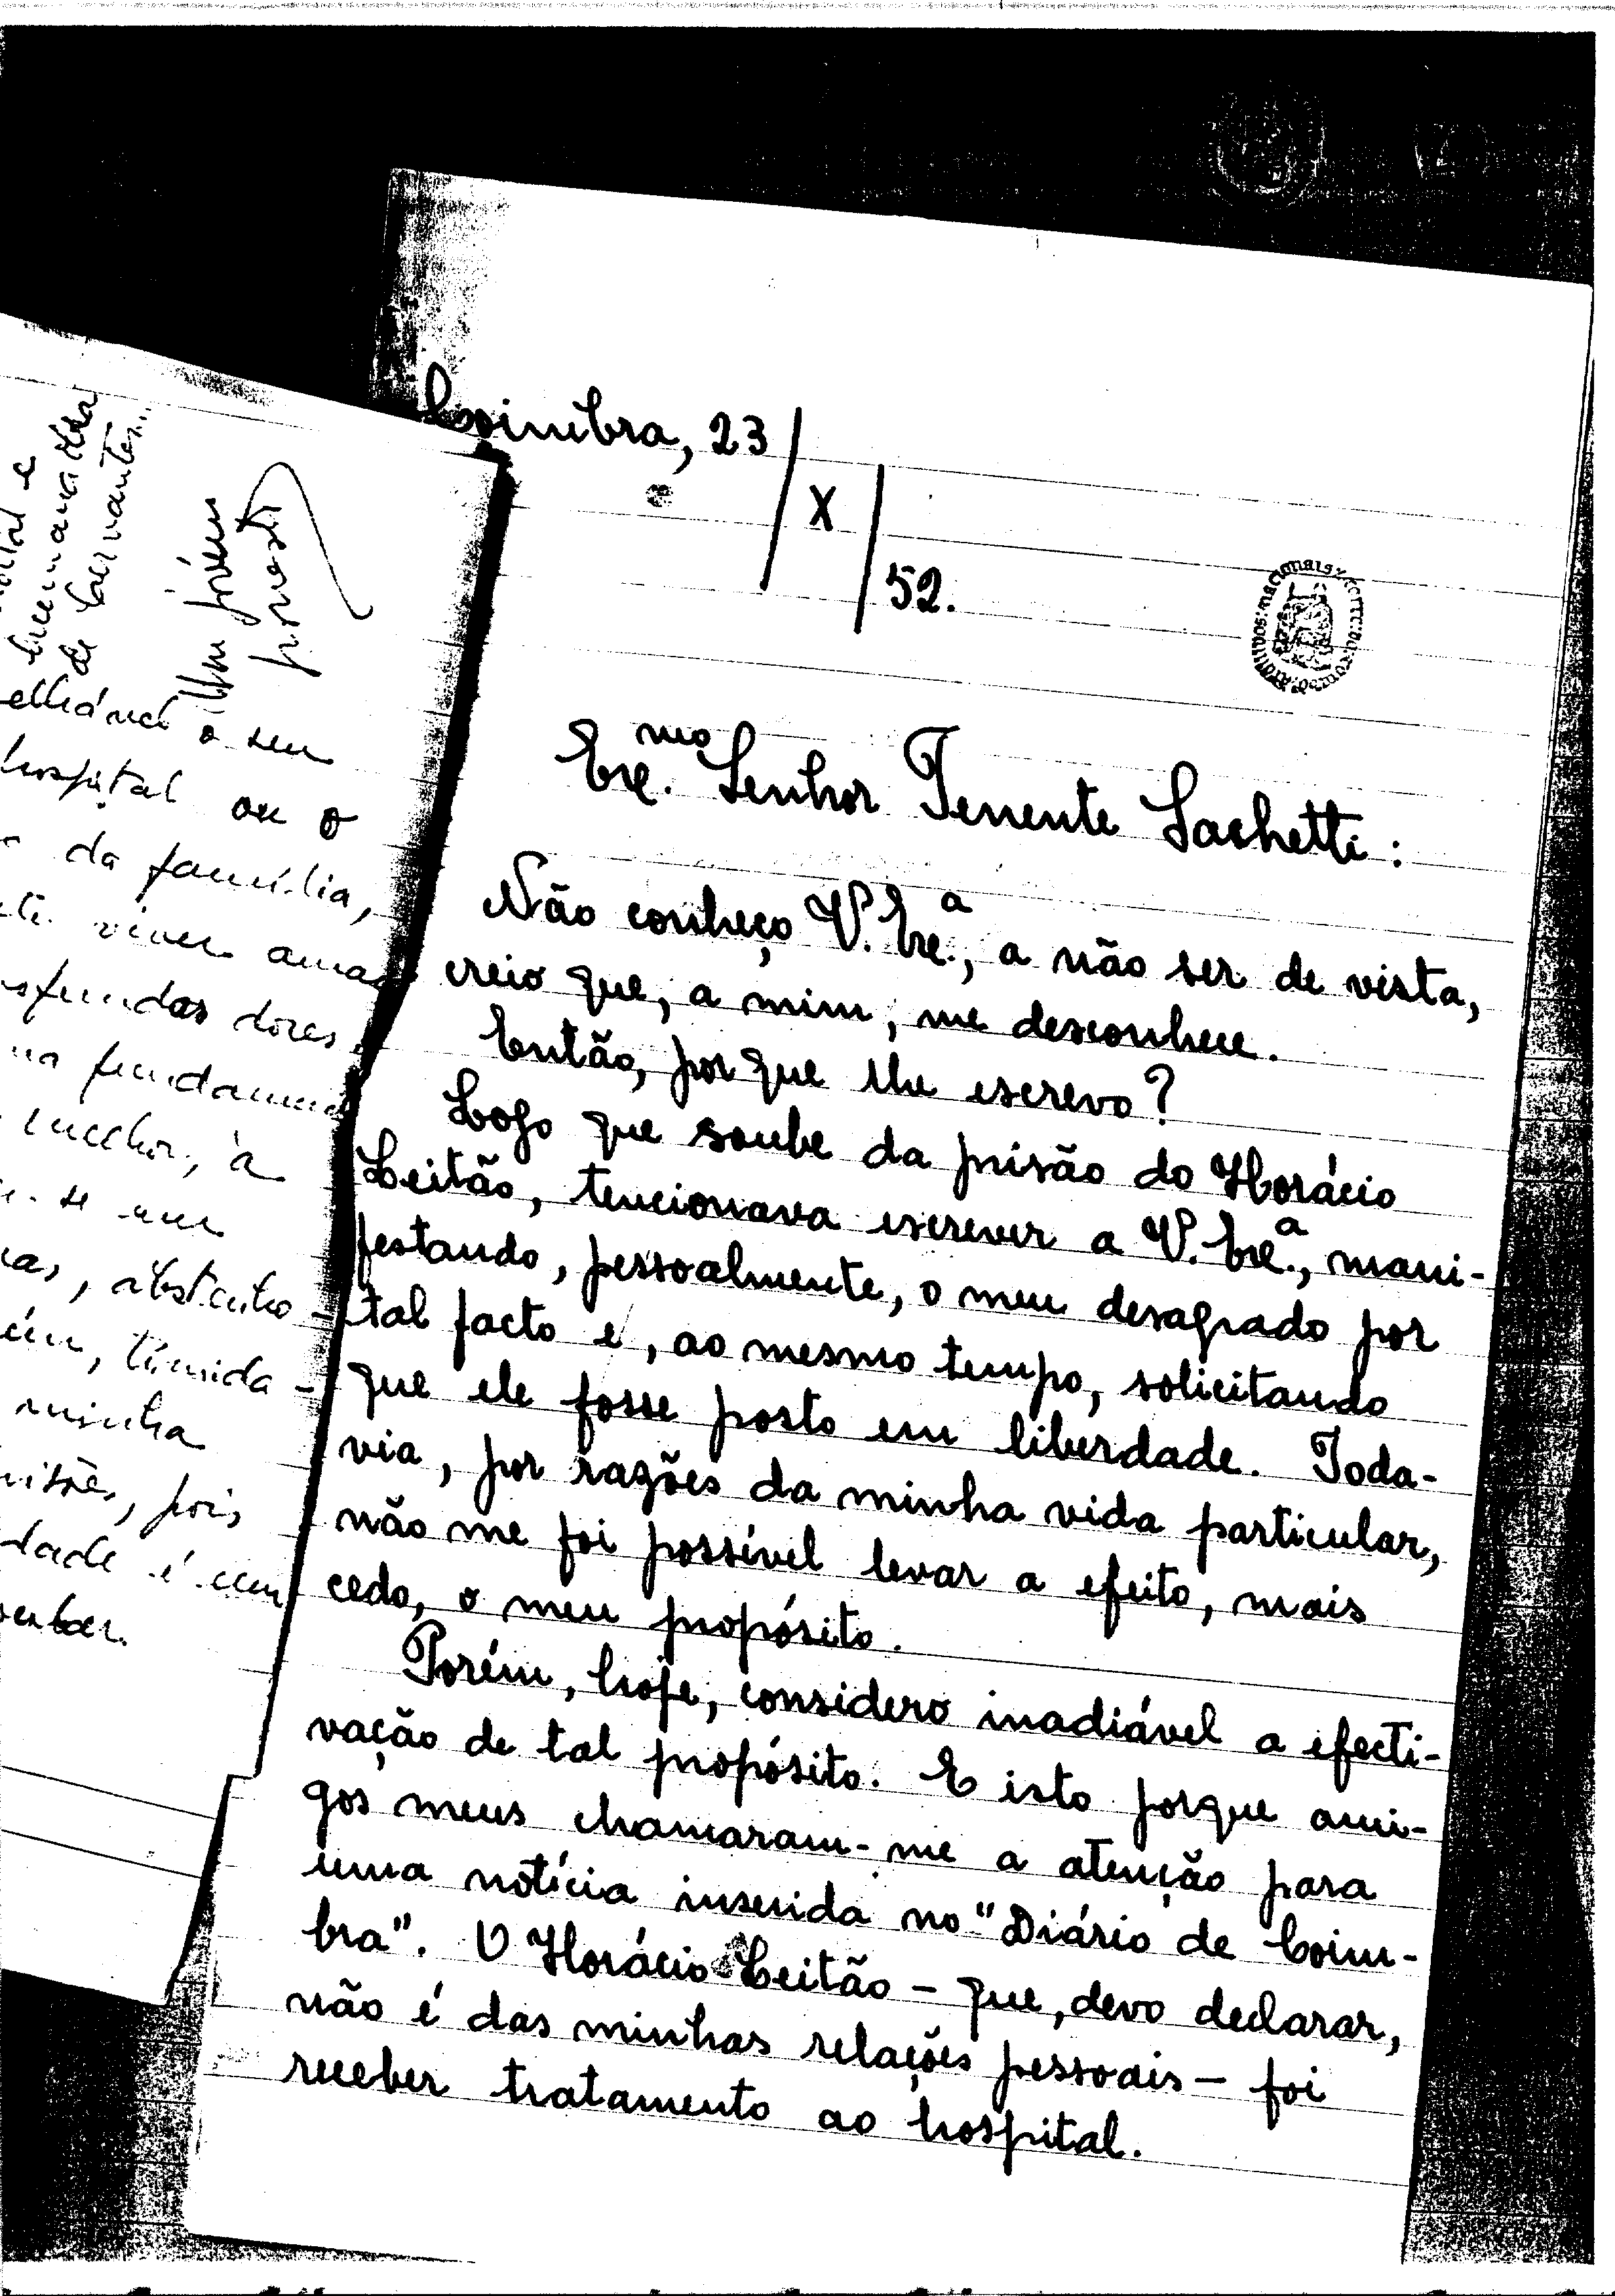 Coimbra, 23/X/52.
Exc.mo Senhor Tenente Sachetti:
Não conheço V. Exc.a, a não ser de vista,
creio que, a mim, me desconhece.
Então, porque lhe escrevo?
Logo que soube da prisão do Horácio
Leitão, tencionava escrever a V. Exc.a, mani-
festando, pessoalmente, o meu desagrado por
tal facto e, ao mesmo tempo, solicitando
que ele fosse posto em liberdade. Toda-
via, por razões da minha vida particular,
não me foi possível levar a efeito, mais
cedo, o meu propósito.
Porém, hoje, considero inadiável a efecti-
vação de tal propósito. E isto porque ami-
gos meus chamaram-me a atenção para
uma notícia inserida no "Diário de Coim-
bra". O Horácio Leitão - que, devo declarar,
não é das minhas relações pessoais - foi
receber tratamento ao hospital.
Um jóvem
o seu
hospital ou o
da família,
viver
dores
à
se
minha
pois